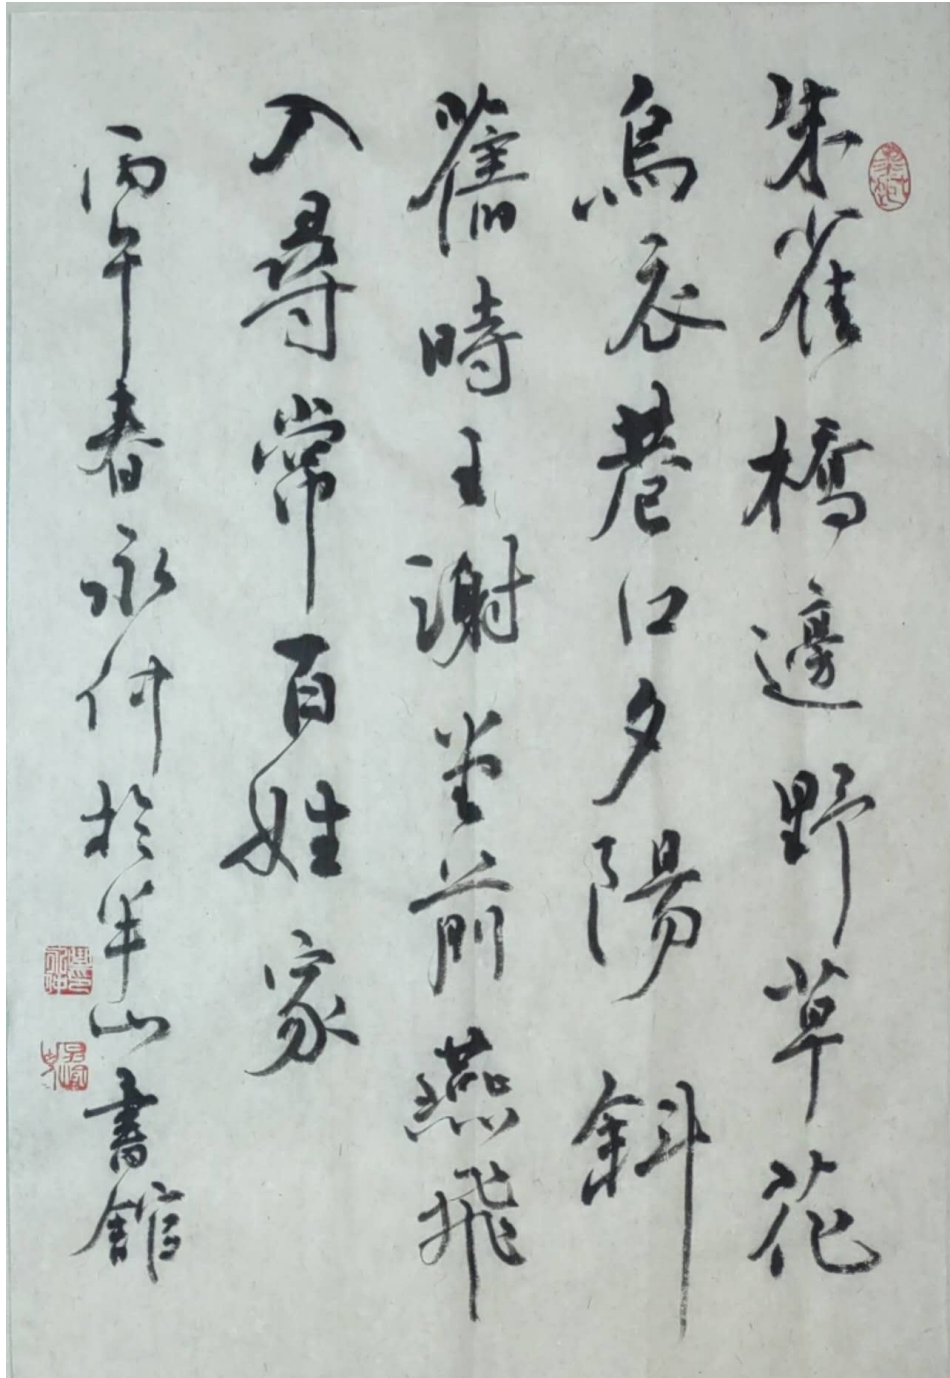 朱雀橋邊野草花
烏衣巷口夕陽斜
舊時王謝堂前燕飛
入尋常百姓家
丙午春永仲於半山書館